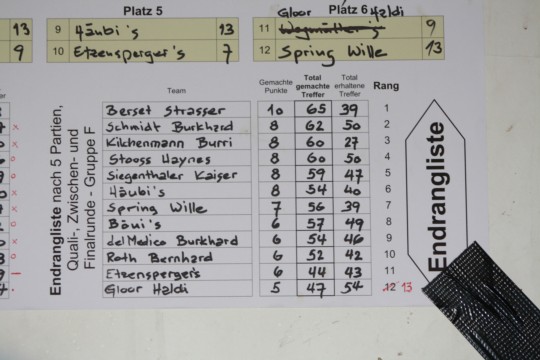 Platz 5
Gloor Haldi
Platz 6
13 9 Häubi's 13 11 9
9 10 Etzensperger's 7 12 Spring Wille 13
Team Gemachte Punkte Total gemachte Treffer Total erhaltene Treffer Rang
Berset Strasser 10 65 39 1
Schmidt Burkhard 8 62 50 2
Kilchenmann Burri 8 60 27 3
Stooss Haynes 8 60 50 4
Siegenthaler Kaiser 8 59 47 5
Häubi's 8 54 40 6
Spring Wille 7 56 39 7
Bäni's 6 57 49 8
del Medico Burkhard 6 54 46 9
Roth Bernhard 6 52 42 10
Etzensperger's 6 44 43 11
Gloor Haldi 5 47 54 12 13
Endrangliste nach 5 Partien,
Quali-, Zwischen- und
Finalrunde - Gruppe F
Endrangliste